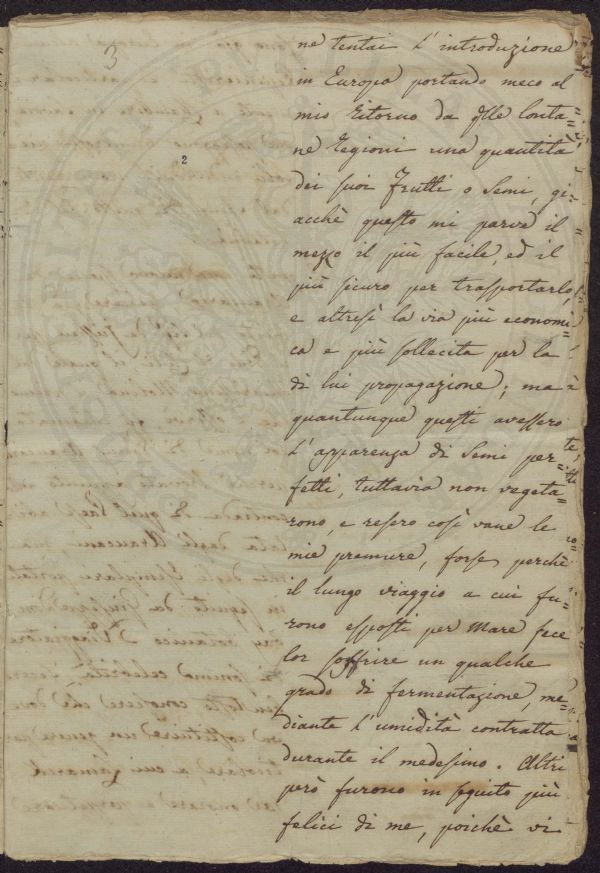 3
2
ne tentai l'introduzione
in Europa portando meco al
mio ritorno da q̃lle lonta=
ne regioni una quantità
dei suoi Frutti o Semi, gi=
acchè questo mi parve il
mezzo il più facile, ed il
più sicuro per trasportarlo,
e altresì la via più economi=
ca e più sollecita per la
di lui propagazione; ma
quantunque questi avessero
l'apparenza di Semi per=
fetti, tuttavia non vegeta=
rono, e resero così vane le
mie premure, forse perchè
il lungo viaggio a cui fu=
rono esposti per Mare fece
lor soffrire un qualche
grado di fermentazione, me=
diante l'umidità contratta
durante il medesimo. Altri
però furono in seguito più
felici di me, poichè vi